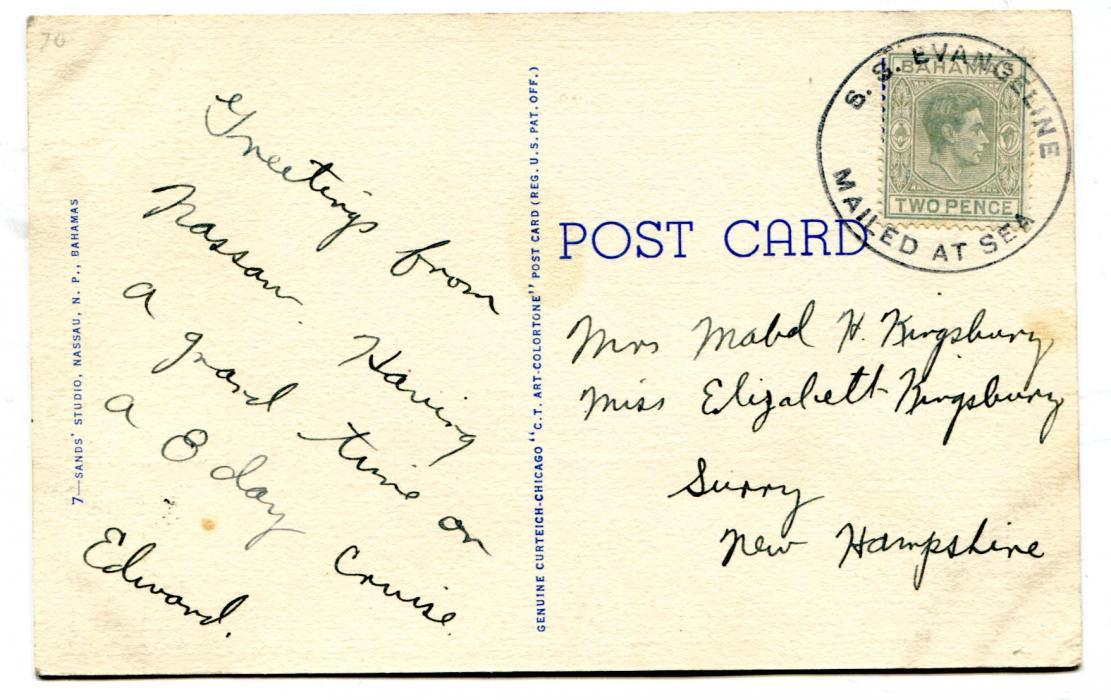 70
Greetings from
Nassau. Having
a grand time on
a 8 day cruise.
Edward.
7—SANDS' STUDIO, NASSAU, N. P., BAHAMAS
GENUINE CURTEICH-CHICAGO "C.T. ART-COLORTONE" POST CARD (REG. U.S. PAT. OFF.)
POST CARD
S. S. EVANGELINE
MAILED AT SEA
BAHAMAS
TWO PENCE
Mrs Mabel H. Kingsbury
Miss Elizabeth Kingsbury
Surry
New Hampshire